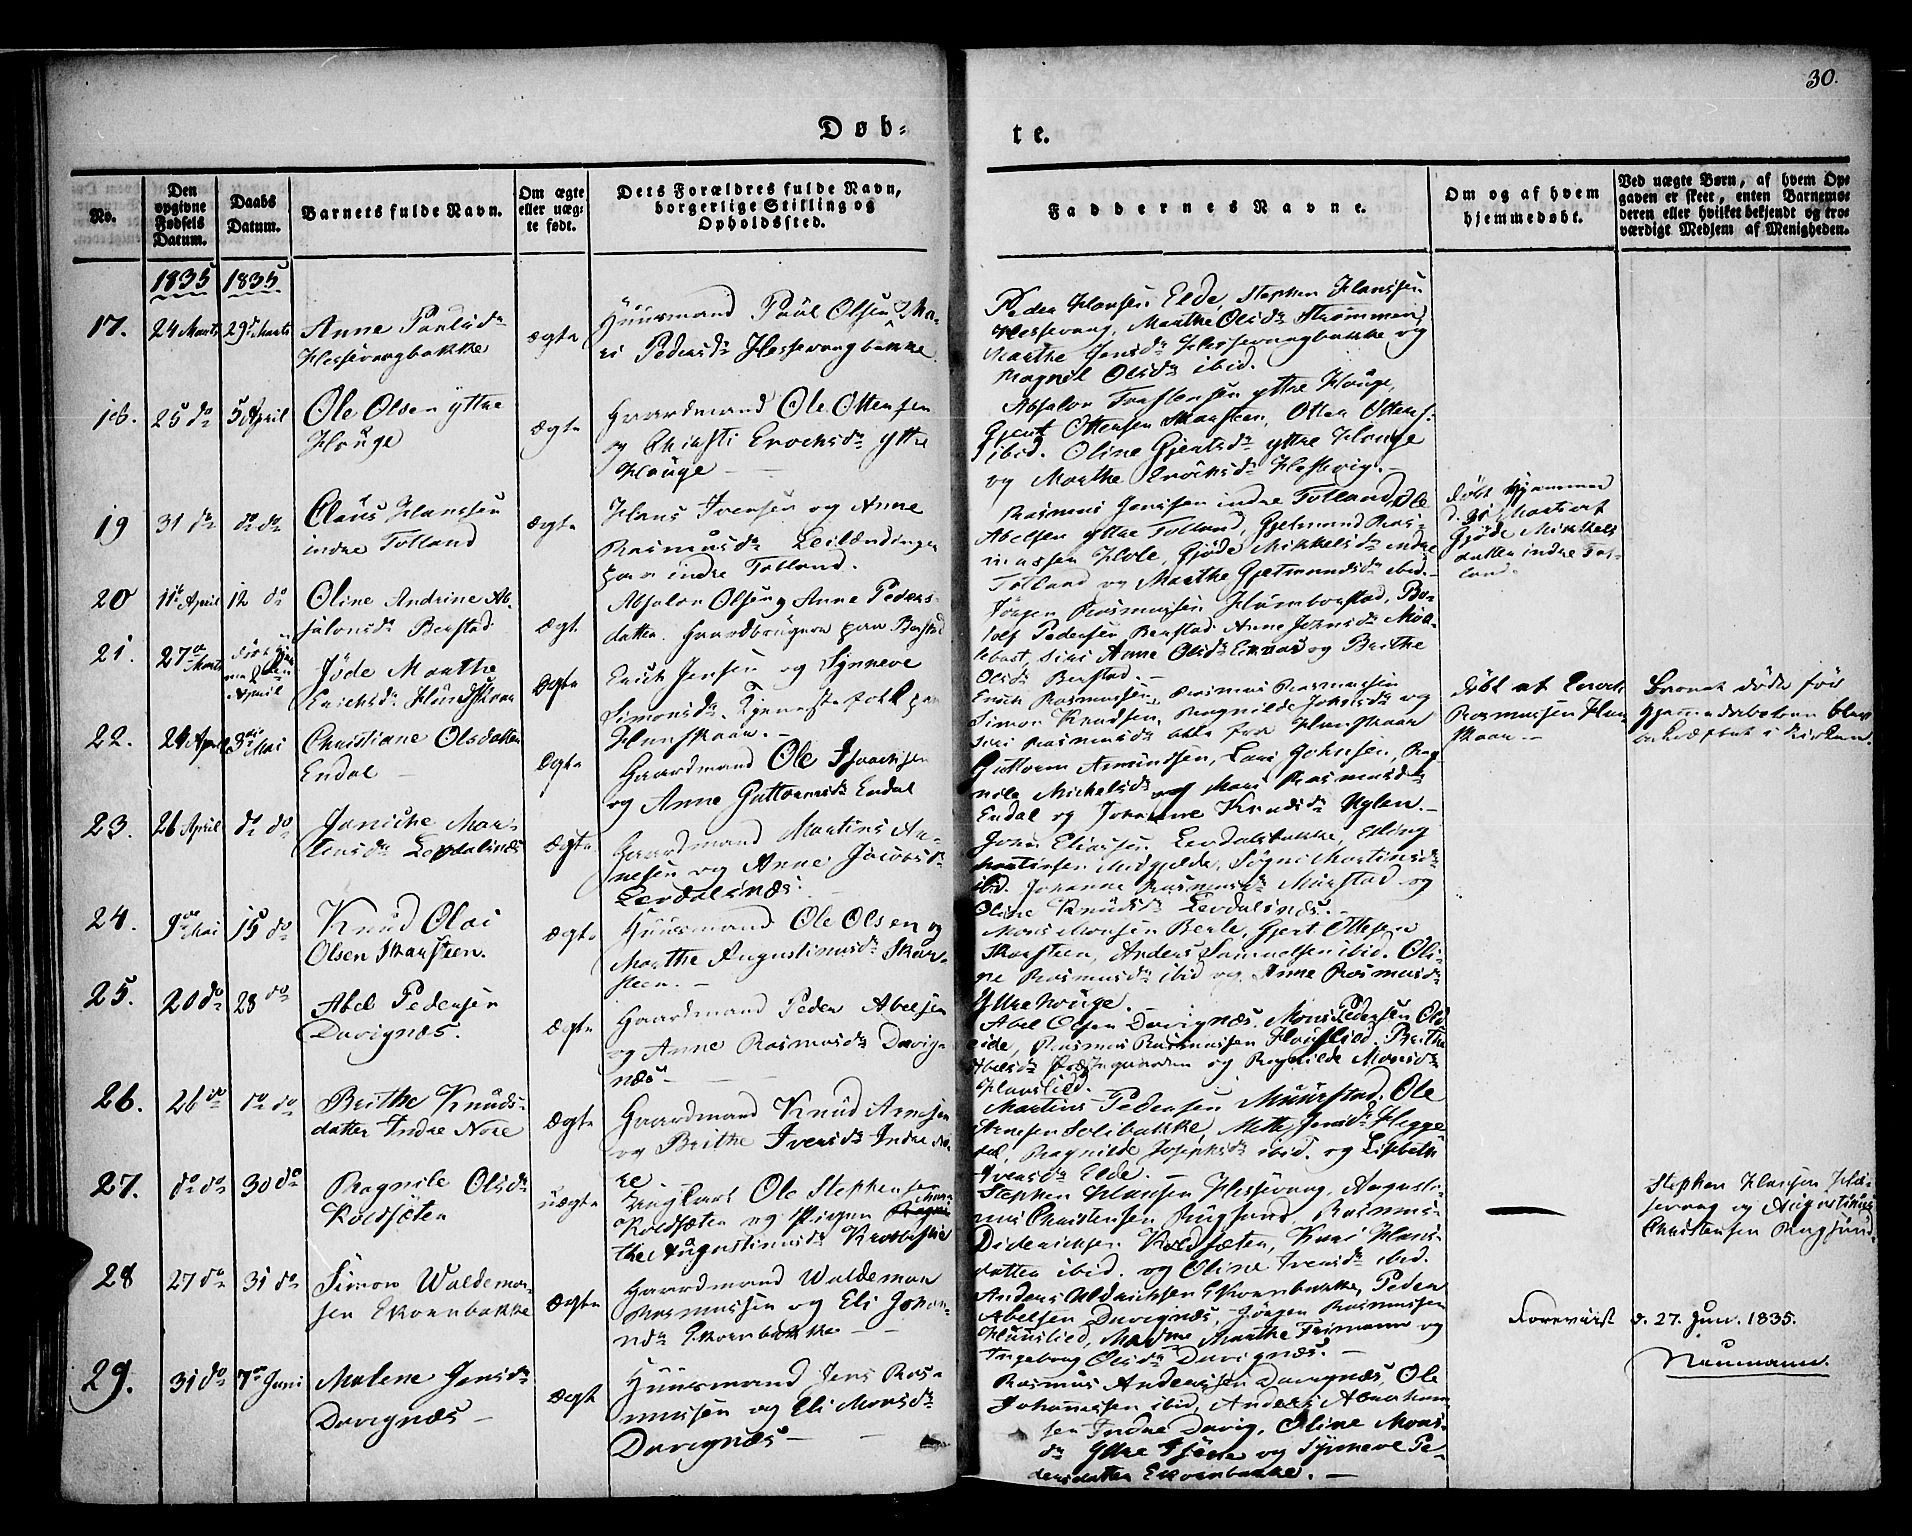 30.
Døb-
te.
No.
Den
opgivne
Fødsels
Datum.
Daabs
Datum.
Barnets fulde Navn.
Om ægte
eller uæg-
te født.
Dets Forældres fulde Navn,
borgerlige Stilling og
Opholdssted.
Faddernes Navne.
Om og af hvem
hjemmedøbt.
Ved uægte Børn, af hvem Op-
gaven er skeet, enten Barnemo-
deren eller hvilket bekjendt og tro-
værdigt Medlem af Menigheden.
1835 1835
17. 24 Marts 29d Marts
Anne Paulsdr
Hessevaagbakke
ægte
Huusmand Paul Olsen & Ma-
ri Pedersdr Hessevaagbakke.
Peder Hansen Elde, Stephen Hanssen
Hessevaag, Marthe Olsdr Strømmen,
Marthe Jensdr Hessevaagbakke og
Ragnil Olsdr ibid.
18. 25 do 5 April
Ole Olsen yttre
Houge
ægte
Gaardmand Ole Ottensen
og Christi Erichsdr yttre
Houge
Absalon yttre Houge,
Gjert Ottensen Skarsteen, Otter Ottens.
ibid. Oline Gjertsdr yttre Houge
og Marthe Erichsdr Hestevig.
19 31 do do do
Claus Hanssen
indre Totland
ægte
Hans Iversen og Anne
Rasmusdr Leilændinger
paa indre Totland.
Rasmus Jonsen indre Totland, Ole
Abelsen yttre Totland, Gjelmund Ras-
mussen Hole, Gjøde Mikkelsdr indre
Totland og Marthe Gjelmundsdr ibid.
døbt hjemme
d. 31 Marts af
Gjøde Mikkels
datter indre Tot-
land.
20 11te April 12 do
Oline Andrine Ab-
salonsdr Berstad
ægt.
Absalon Olsen og Anne Peders-
datter. Gaardbrugere paa Berstad
Jørgen Rasmussen Humborstad, Bo-
tolf Pedersen Berstad, Anne Johnsdr Maa-
lebost, Siri Anne Olsdr og Brithe
Olsdr Berstad.
21. 27de Marts
April
Jøde Marthe
Erichsdr Hundskaar
ægte
Erich Jensen og Synneve
Simonsdr. Tjenestefolk paa
Hunskaar.
Erich Rasmussen, Rasmus Rasmussen
Simon Knudsen, Ragnilde Johnsdr og
Siri Rasmusdr alle fra Hunskaar
døbt af Erich
Rasmussen Hun-
skaar.
Barnet døde før
hjemmedaaben blev
bekræftet i Kirken.
22. 24 April 3die Mai
Christiane Olsdatter
Endal
ægte
Gaardmand Ole Isaachsen
og Anne Guttormsdr Endal
Guttorm Amundsen, Lars Johnsen, Rag-
nile Mickelsdr og Mari Rasmusdr
Endal og Johanne Knudsdr Nylen.
23. 26 April do do
Janiche Mar-
tinsdr Levdalsnæs
ægte
Gaardmand Martins An-
nesen og Anne Jacobsdr
Levdalsnæs.
John Eliassen Levdalsbakke, Elling
Martinsen Midgjelde, Søgni Martinsdr
ibid. Johanne Rasmusdr Maurstad og
Oline Knudsdr Levdalsnæs.
24. 9de Mai 15 do
Knud Olai
Olsen Skarsteen.
ægte
Huusmand Ole Olsen og
Marthe Augustinusdr Skar-
steen.
Mons Monsen Berle, Gjert Ottesen
Skarsteen, Anders Samuelsen ibid. Oli-
ne Rasmusdr ibid og Anne Rasmusdr
Yttre Houge.
25. 20 do 28 do
Abel Pedersen
Davignæs.
ægte
Gaardmand Peder Abelsen
og Anne Rasmusdr Davig-
næs
Abel Olsen Davignæs, Mons Pedersen Eld-
eide, Rasmus Rasmussen Hauslied, Brithe
Abelsdr Præstegaarden og Ragnilde Monsdr
Hauslied.
26. 26 do do do
Brithe Knuds-
datter Indre Nore
ægte
Gaardmand Knud Arnesen
og Brithe Iversdr Indre No-
re.
Martins Pedersen Muurstad, Ole
Arnesen Solibakke, Mette Jensdr Hegge
dal, Ragnilde Josephsdr ibid. og Lisbeth
Iversdr Elde.
27. do do 30 do
Ragnile Olsdr
Koldsæten
uægte
Ungkarl Ole Stephensen
Koldsæten og Pigen Mar-
the Augustinusdr Krosbakke
Stephen Hansen Hessevaag, Augusti-
nus Christensen Rugsund, Rasmus
Diderichsen Koldsæten, Kari Hans-
datter ibid. og Oline Iversdr ibid.
Stephen Hansen Hes-
sevaag og Augustinus
Christensen Rugsund.
28 27 do 31 do
Simon Waldemar-
sen Ekornbakke
ægte
Gaardmand Waldemar
Rasmussen og Eli Johan-
nsdr Ekornbakke
Anders Uldrichsen Ekornbakke, Peder
Abelsen Davignæs, Jørgen Rasmussen
Hunslied, Madme Marthe Frimann og
Ingeborg Olsdr Davignæs.
Foreviist d. 27. Jun. 1835.
Neumann.
29. 31 do 7de Juni
Malene Jensdr
Davignæs
ægt
Huusmand Jens Ras-
mussen og Eli Monsdr
Davignæs
Rasmus Anderssen Davignæs, Ole
Johannesen ibid, Anders Abraham
sen Indre Davig, Oline Mons-
dr Yttre og Synneve Pe-
dersdatter Ekornbakke.